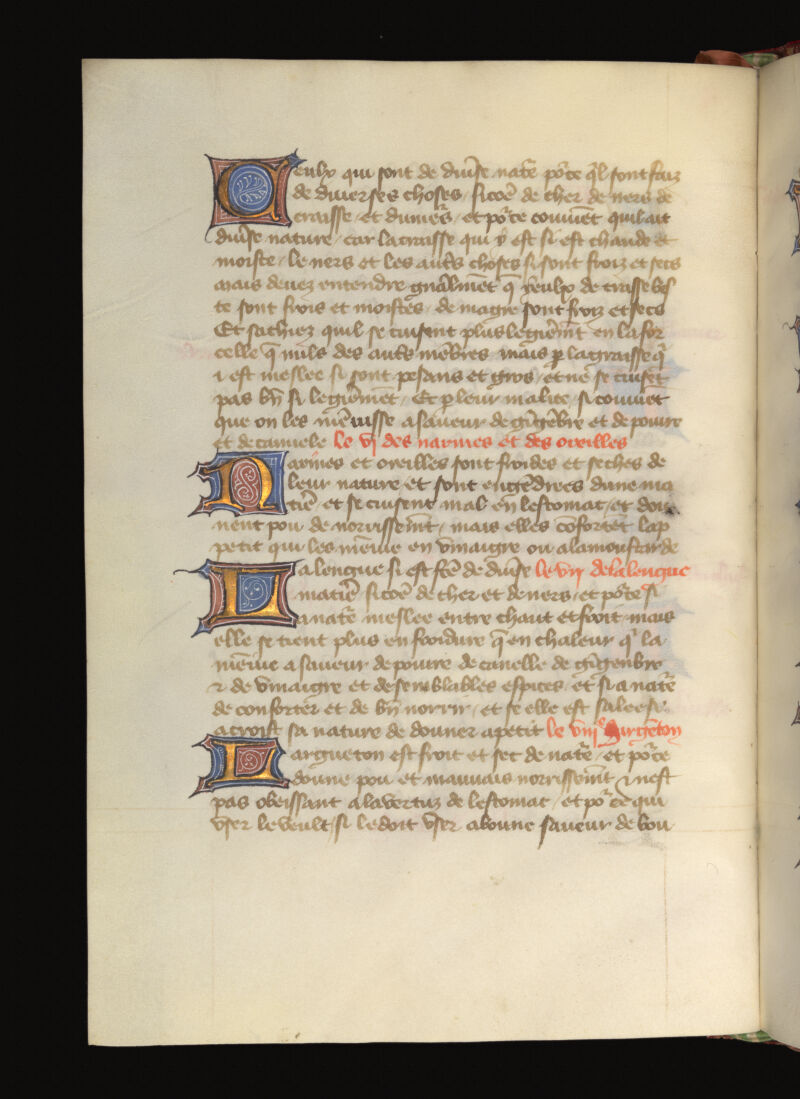 Ceulx qui sont de diũse natē põce q̃l sont faiz
de diuerses choses / sicõe de cher de ners de
craisse et dumeᷣs / et põce conuiēt quil ait
diũse nature / car la craisse qui y est si est chaude et
moiste / le ners et les autᷤs choses si sont froiz et secs
mais deuez entendre gnãlmēt q̃ yeulx de crasse bes
te sont frois et moistes / de magre sont froiz et secs
Et sachiez quil se cuisent plus legieᷣmt̄ en la for
celle q̃ nulz des autᷤs mēbres / mais p la graisse q̃
y est meslee si sont pesans et gros / et ne se cuiset
pas bn̄ si legieᷣmēt / Et p leur malice / si conuiēt
que on les mēnisse a saueur de gīgēbre et de poiure
et de cannele le vj des narines et des oreilles
Narines et oreilles sont froides et seches de
leur nature et sont engēdrees dune ma
tiē et se cuisent mal en lestomac / et don
nent pou de norrissemt̄ / mais elles cōfortēt lap
petit qui les mēiue en vinaigre ou a la moustarde
La lengue si est fcē de diũse le vij de la lengue
matiē sicõe de cher et de ners / et põce si
a natē meslee entre chaut et froit mais
elle se tient plus en froidure q̃ en chaleur qͥ la
mēiue a saueur de poiure de canelle de gīgenbre
⁊ de vinaigre et de semblables espices / et si a natē
de conforter et de bn̄ norrir / et se elle est salee si
acroist sa nature de donner apetit le viijᵉ Surgeton
Largueton est froit et sec de natē / et põce
donne pou et mauuais norrissemt̄ / ⁊ nest
pas obeissant a la vertuz de lestomac / et põ ce qui
vser le veult si le doit vser a bonne saueur de bon